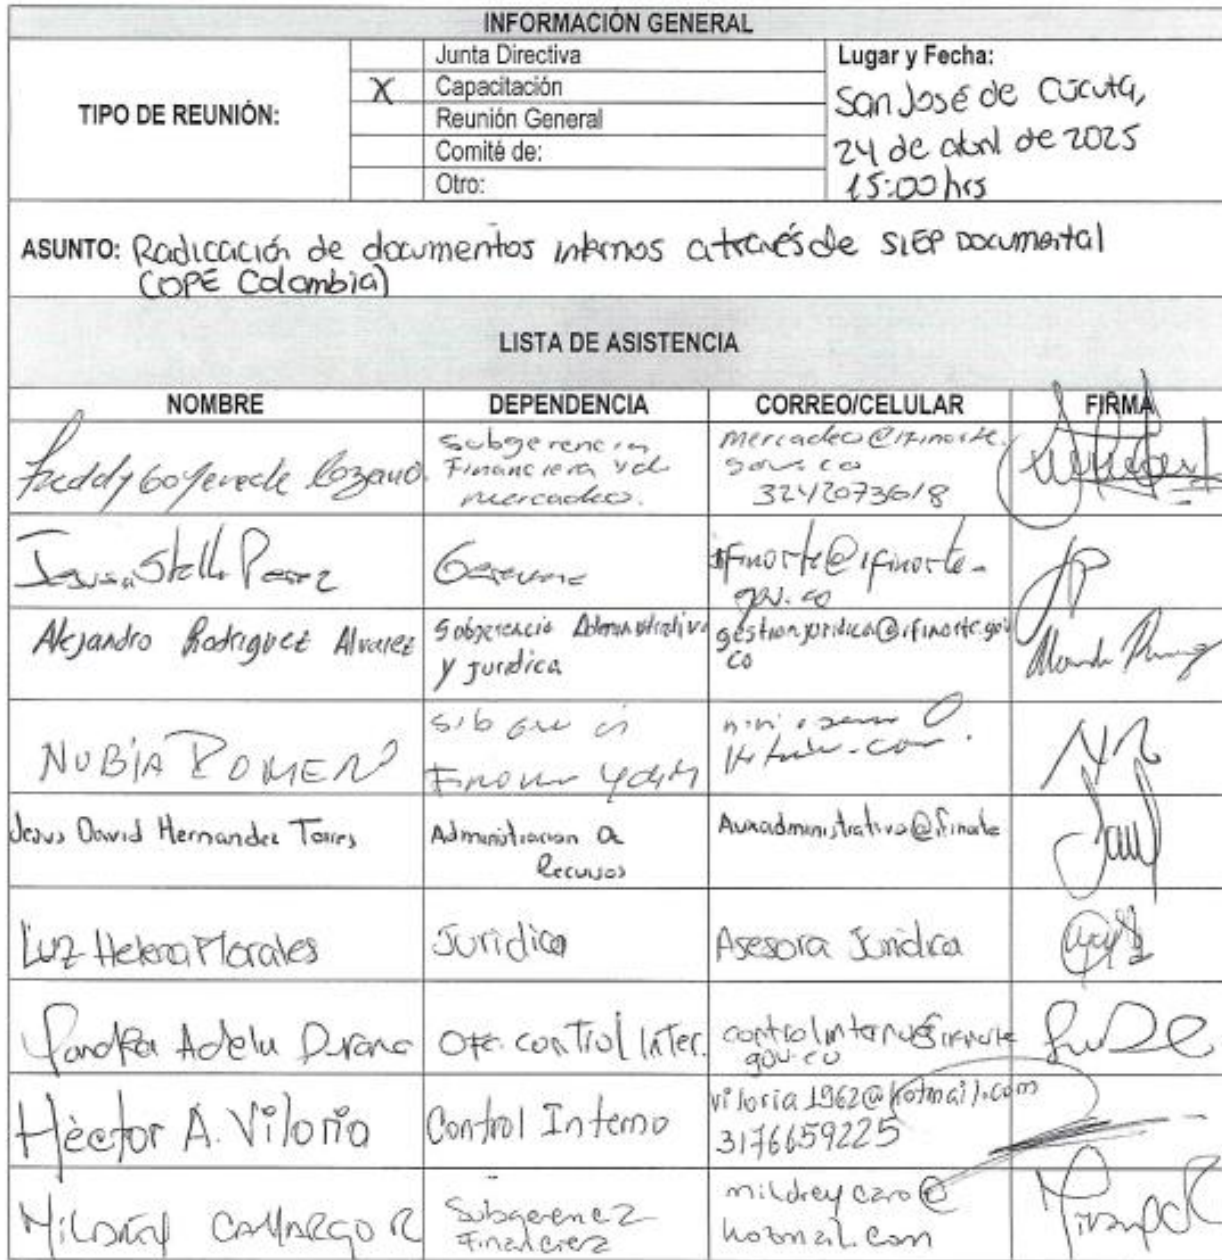 INFORMACIÓN GENERAL
TIPO DE REUNIÓN:
Junta Directiva
X Capacitación
Reunión General
Comité de:
Otro:
Lugar y Fecha:
San José de Cúcuta,
24 de abril de 2025
15:00 hrs
ASUNTO: Radicación de documentos internos a través de SIEP Documental
(OPE Colombia)
LISTA DE ASISTENCIA
NOMBRE DEPENDENCIA CORREO/CELULAR FIRMA
Freddy Goyeneche Lozano.
Subgerencia
Financiera y de
mercadeo.
mercadeo@ifinorte.
gov.co
3242073618
Stella
Gerencia
ifinorte@ifinorte.
gov.co
Alejandro Rodriguez Alvarez
Subgerencia Administrativa
y juridica
gestionjuridica@ifinorte.gov
co
NUBIA ROMERO
Jesus David Hernandez Torres
Administracion de
Recursos
Auxadministrativo@ifinorte
Luz Helena Morales
Juridica
Asesora Juridica
Adela Duran
Ofc. control Inter.
controlinterno@ifinorte
gov.co
Héctor A. Viloria
Control Interno
viloria1962@hotmail.com
3176659225
MILDREY CAMARGO R
Subgerencia
Financiera
mildreycaro@
hotmail.com